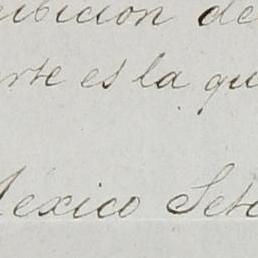 ibicion de
arte es la qu
Mexico Set